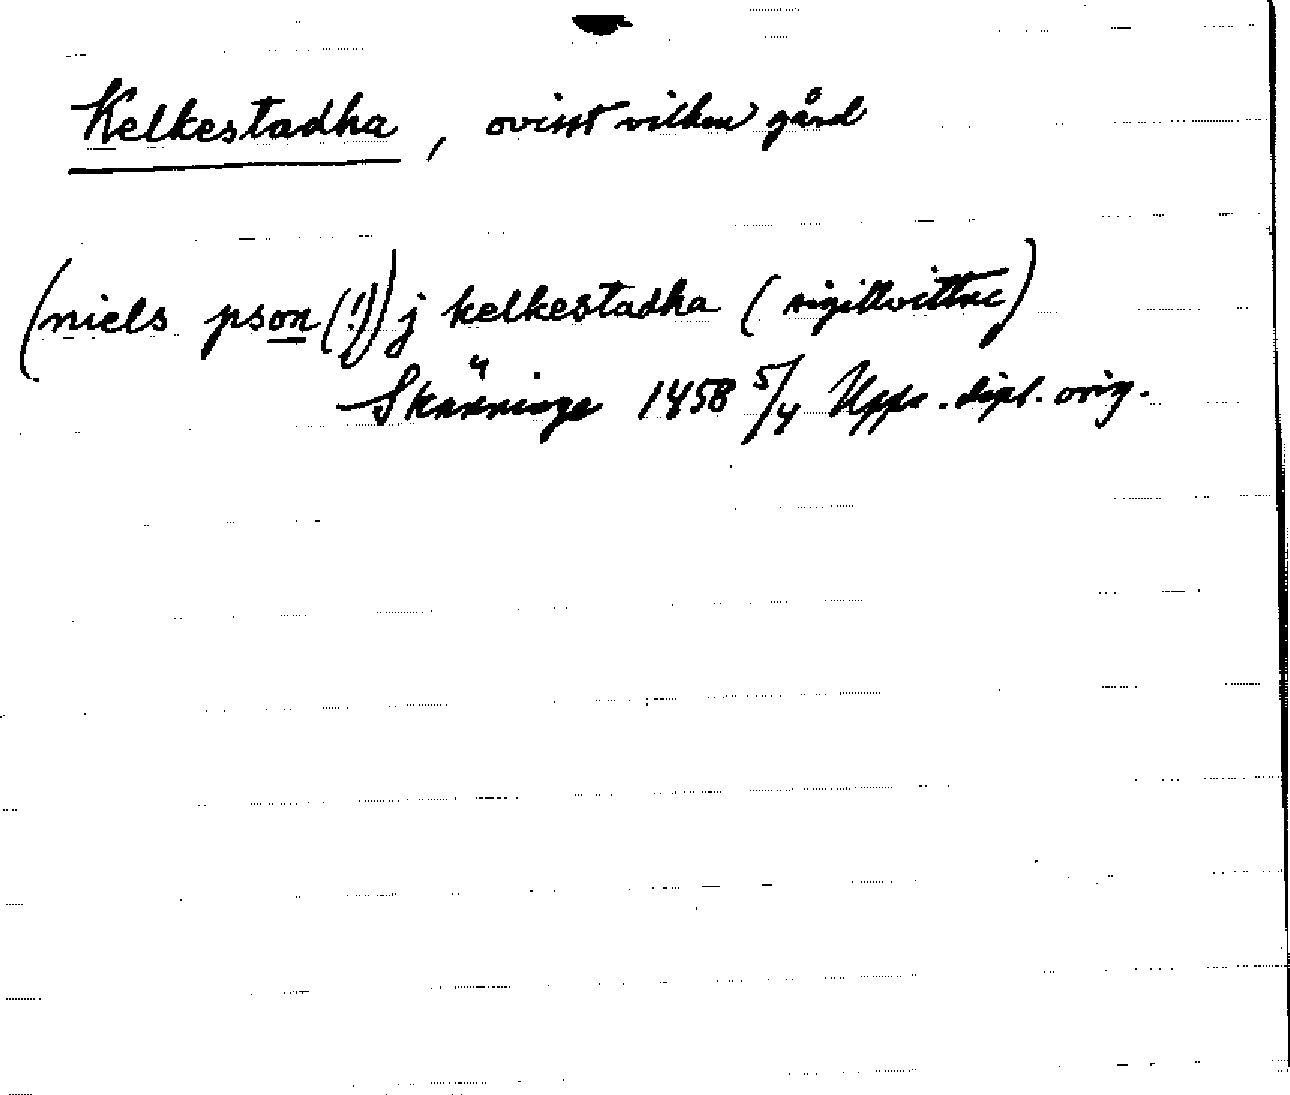 Kelkestadha, ovisst vilken gård
(niels pson(!)) j kelkestadha (sigillvittne)
Skänninge 1458 5/4 Upps. dipl. orig.